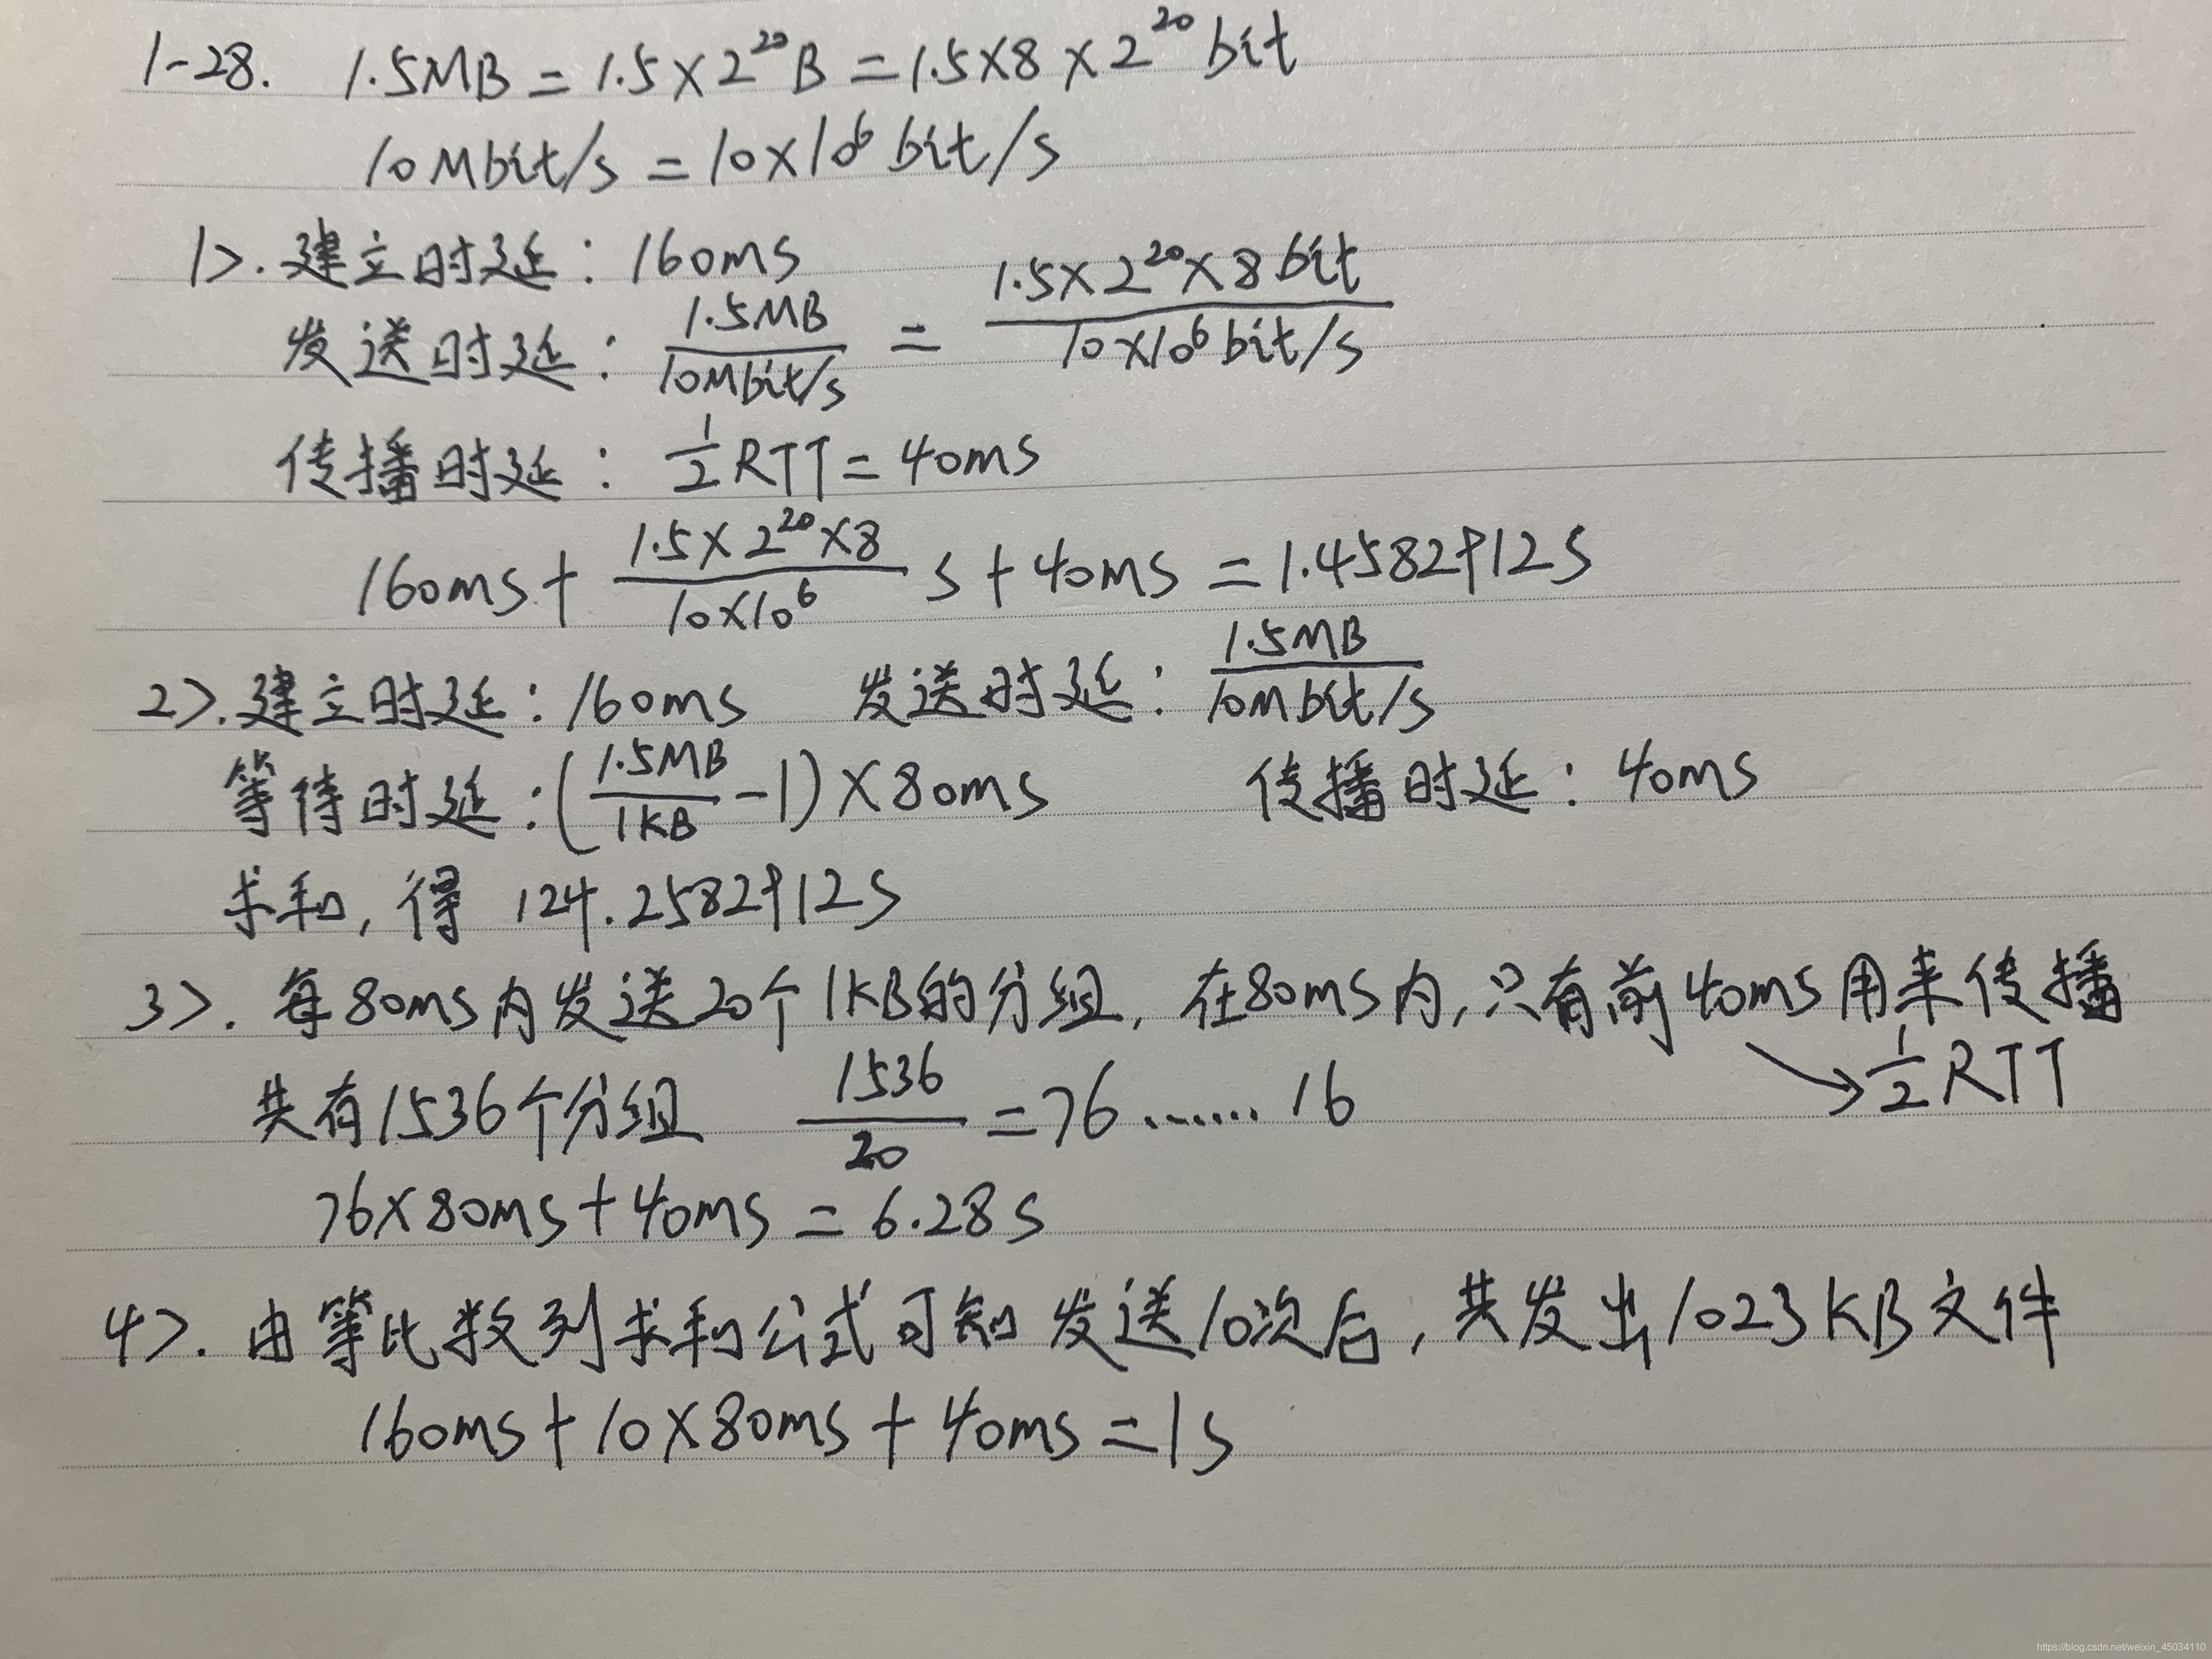 1-28. 1.5MB = 1.5×2²⁰B = 1.5×8×2²⁰bit
10Mbit/s = 10×10⁶bit/s
1>. 建立时延: 160ms
发送时延: 1.5MB/10Mbit/s = 1.5×2²⁰×8bit/10×10⁶bit/s
传播时延: 1/2 RTT = 40ms
160ms + 1.5×2²⁰×8/10×10⁶ s + 40ms = 1.4582912s
2>. 建立时延: 160ms 发送时延: 1.5MB/10Mbit/s
等待时延: (1.5MB/1KB - 1)×80ms 传播时延: 40ms
求和, 得 124.2582912s
3>. 每80ms内发送20个1KB的分组, 在80ms内, 只有前40ms用来传播
→ 1/2 RTT
共有1536个分组 1536/20 = 76......16
76×80ms + 40ms = 6.28s
4>. 由等比数列求和公式可知发送10次后, 共发出1023KB文件
160ms + 10×80ms + 40ms = 1s
https://blog.csdn.net/weixin_45034110